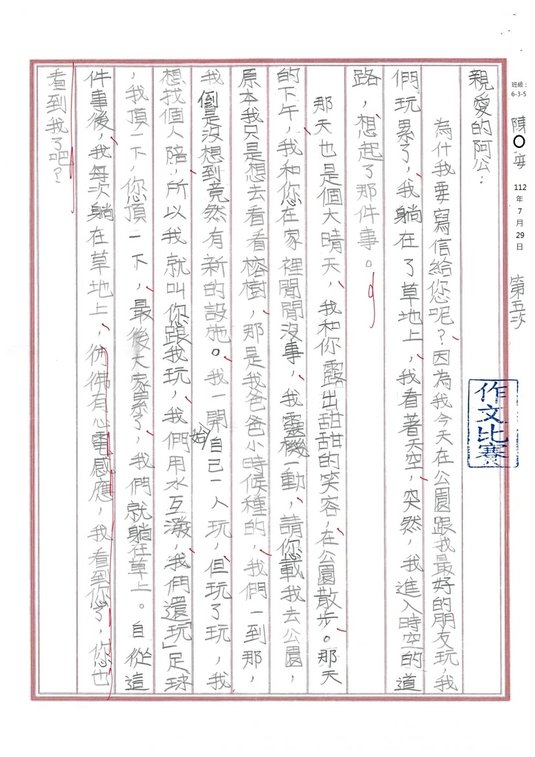 班級：
6-3-5
陳○安
112
年
7
月
29
日
第五次
作文比賽
親愛的阿公：
為什我要寫信給您呢？因為我今天在公園跟我最好的朋友玩，我
們玩累了，我躺在了草地上，我看著天空，突然，我進入時空的道
路，想起了那件事。
那天也是個大晴天，我和你露出甜甜的笑容，在公園散步。那天
的下午，我和您在家裡閒閒沒事，我靈機一動，請您載我去公園，
原本我只是想去看看榕樹，那是我爸爸小時候種的，我們一到那，
我倒是沒想到竟然有新的設施。我一開始自己一人玩，但玩了玩，我
想找個人陪，所以我就叫你跟我玩，我們用水互潑，我們還「玩」足球
，我頂一下，您頂一下，最後大家累了，我們就躺在草上。自從這
件事後，我每次躺在草地上，彷彿有心電感應，我看到你了，您也
看到我了吧？